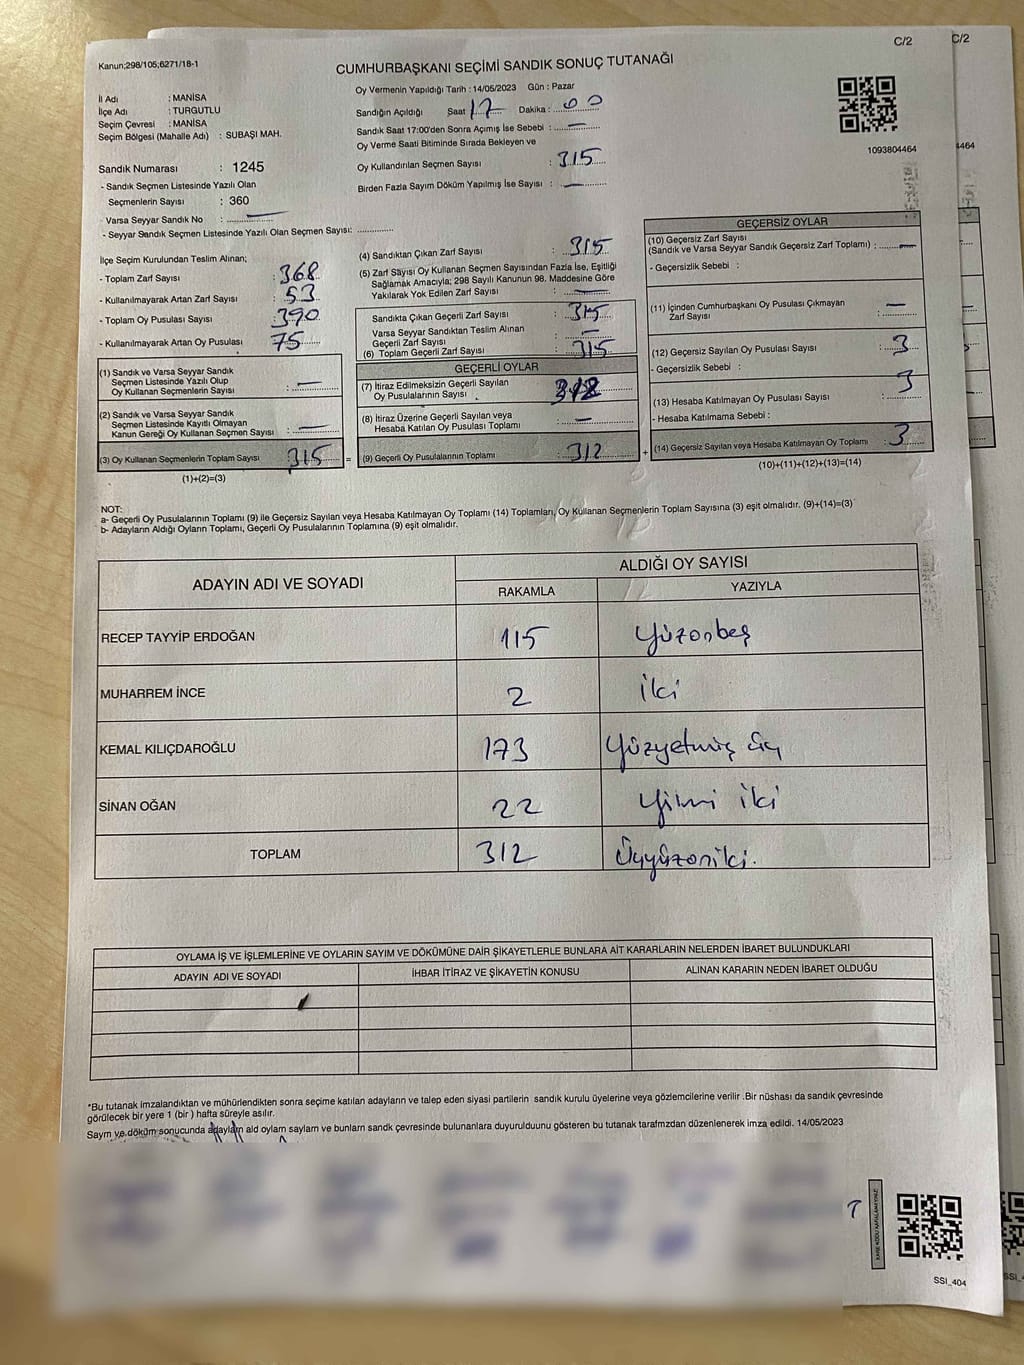 C/2
C/2
Kanun;298/105;6271/18-1
CUMHURBAŞKANI SEÇİMİ SANDIK SONUÇ TUTANAĞI
İl Adı : MANİSA
İlçe Adı : TURGUTLU
Seçim Çevresi : MANİSA
Seçim Bölgesi (Mahalle Adı) : SUBAŞI MAH.
Oy Vermenin Yapıldığı Tarih : 14/05/2023 Gün : Pazar
Sandığın Açıldığı Saat 17 Dakika : 00
Sandık Saat 17:00'den Sonra Açımış İse Sebebi : —
Oy Verme Saati Bitiminde Sırada Bekleyen ve
Oy Kullandırılan Seçmen Sayısı : 315
Birden Fazla Sayım Döküm Yapılmış İse Sayısı : —
1093804464
4464
Sandık Numarası : 1245
- Sandık Seçmen Listesinde Yazılı Olan
Seçmenlerin Sayısı : 360
- Varsa Seyyar Sandık No : —
- Seyyar Sandık Seçmen Listesinde Yazılı Olan Seçmen Sayısı:
İlçe Seçim Kurulundan Teslim Alınan;
- Toplam Zarf Sayısı : 368
- Kullanılmayarak Artan Zarf Sayısı : 53
- Toplam Oy Pusulası Sayısı : 390
- Kullanılmayarak Artan Oy Pusulası : 75
(1) Sandık ve Varsa Seyyar Sandık
Seçmen Listesinde Yazılı Olup
Oy Kullanan Seçmenlerin Sayısı : —
(2) Sandık ve Varsa Seyyar Sandık
Seçmen Listesinde Kayıtlı Olmayan
Kanun Gereği Oy Kullanan Seçmen Sayısı : —
(3) Oy Kullanan Seçmenlerin Toplam Sayısı 315 =
(1)+(2)=(3)
(4) Sandıktan Çıkan Zarf Sayısı : 315
(5) Zarf Sayısı Oy Kullanan Seçmen Sayısından Fazla İse, Eşitliği
Sağlamak Amacıyla; 298 Sayılı Kanunun 98. Maddesine Göre
Yakılarak Yok Edilen Zarf Sayısı : —
Sandıkta Çıkan Geçerli Zarf Sayısı : 315
Varsa Seyyar Sandıktan Teslim Alınan
Geçerli Zarf Sayısı : —
(6) Toplam Geçerli Zarf Sayısı : 315
GEÇERLİ OYLAR
(7) İtiraz Edilmeksizin Geçerli Sayılan
Oy Pusulalarının Sayısı : 312
(8) İtiraz Üzerine Geçerli Sayılan veya
Hesaba Katılan Oy Pusulası Toplamı : —
(9) Geçerli Oy Pusulalarının Toplamı : 312 +
GEÇERSİZ OYLAR
(10) Geçersiz Zarf Sayısı
(Sandık ve Varsa Seyyar Sandık Geçersiz Zarf Toplamı) : —
- Geçersizlik Sebebi :
(11) İçinden Cumhurbaşkanı Oy Pusulası Çıkmayan
Zarf Sayısı : —
(12) Geçersiz Sayılan Oy Pusulası Sayısı : 3
- Geçersizlik Sebebi :
(13) Hesaba Katılmayan Oy Pusulası Sayısı : 3
- Hesaba Katılmama Sebebi :
(14) Geçersiz Sayılan veya Hesaba Katılmayan Oy Toplamı : 3
(10)+(11)+(12)+(13)=(14)
NOT:
a- Geçerli Oy Pusulalarının Toplamı (9) ile Geçersiz Sayılan veya Hesaba Katılmayan Oy Toplamı (14) Toplamları, Oy Kullanan Seçmenlerin Toplam Sayısına (3) eşit olmalıdır. (9)+(14)=(3)
b- Adayların Aldığı Oyların Toplamı, Geçerli Oy Pusulalarının Toplamına (9) eşit olmalıdır.
ADAYIN ADI VE SOYADI ALDIĞI OY SAYISI
RAKAMLA YAZIYLA
RECEP TAYYİP ERDOĞAN 115 Yüzonbeş
MUHARREM İNCE 2 iki
KEMAL KILIÇDAROĞLU 173 Yüzyetmiş üç
SİNAN OĞAN 22 Yirmi iki
TOPLAM 312 Üçyüzoniki.
OYLAMA İŞ VE İŞLEMLERİNE VE OYLARIN SAYIM VE DÖKÜMÜNE DAİR ŞİKAYETLERLE BUNLARA AİT KARARLARIN NELERDEN İBARET BULUNDUKLARI
ADAYIN ADI VE SOYADI İHBAR İTİRAZ VE ŞİKAYETİN KONUSU ALINAN KARARIN NEDEN İBARET OLDUĞU
*Bu tutanak imzalandıktan ve mühürlendikten sonra seçime katılan adayların ve talep eden siyasi partilerin sandık kurulu üyelerine veya gözlemcilerine verilir .Bir nüshası da sandık çevresinde
görülecek bir yere 1 (bir ) hafta süreyle asılır.
Saym ve döküm sonucunda adaylarn ald oylarn saylarn ve bunlarn sandk çevresinde bulunanlara duyurulduunu gösteren bu tutanak tarafmzdan düzenlenerek imza edildi. 14/05/2023
SSI_404